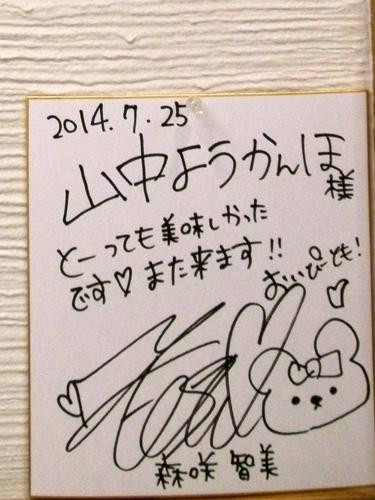 2014.7.25
山中ようかんほ
様
とーっても美味しかった
です♡また来ます!!
おいぴでも!
森咲智美